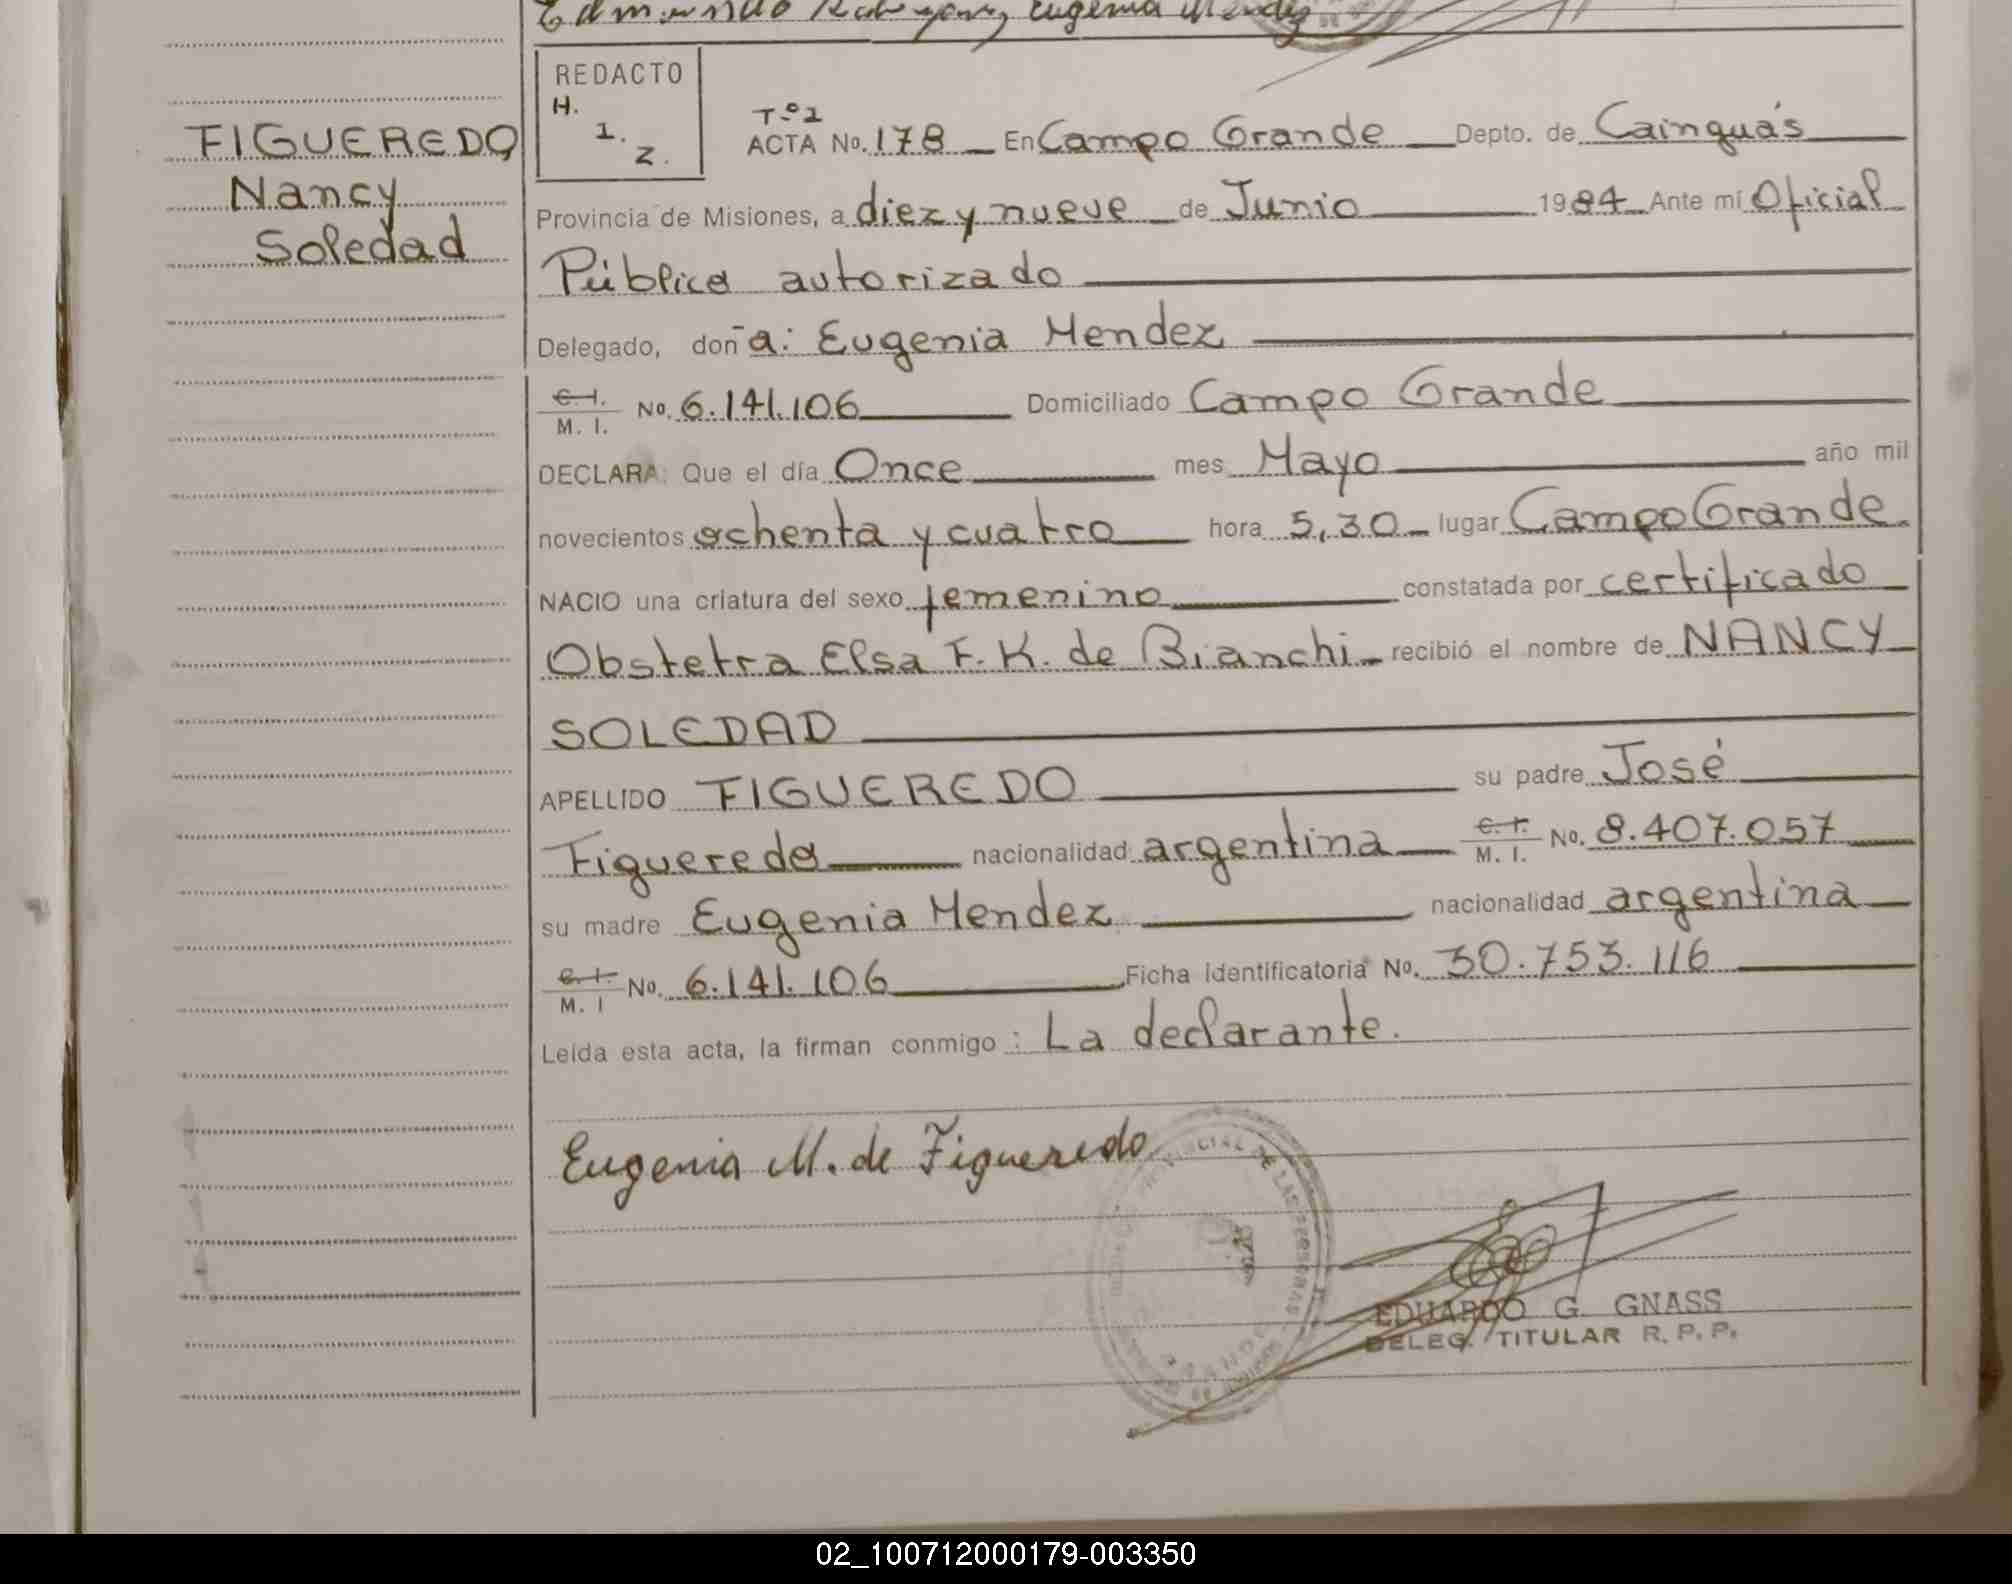 Edmundo Eugenia Mendez
FIGUEREDO,
Nancy
Soledad
REDACTO
H.
I.
Z.
Tº 2
ACTA No. 178 En Campo Grande Depto. de Cainguás
Provincia de Misiones, a diez y nueve de Junio 1984 Ante mí Oficial
Público autorizado
Delegado, doñ a: Eugenia Mendez
C. I.
M. I. No. 6.141.106 Domiciliado Campo Grande
DECLARA: Que el día Once mes Mayo año mil
novecientos ochenta y cuatro hora 5,30 lugar Campo Grande.
NACIO una criatura del sexo femenino constatada por certificado
Obstetra Elsa F. K. de Bianchi recibió el nombre de NANCY
SOLEDAD
APELLIDO FIGUEREDO su padre José
Figueredo nacionalidad argentina C. I. M. I. No. 8.407.057
su madre Eugenia Mendez nacionalidad argentina
C. I.
M. I No. 6.141.106 Ficha identificatoria No. 30.753.116
Leída esta acta, la firman conmigo: La declarante.
Eugenia M. de Figueredo
PROVINCIAL DE LAS PERSONAS
EDUARDO G. GNASS
DELEG. TITULAR R. P. P.
02_100712000179-003350